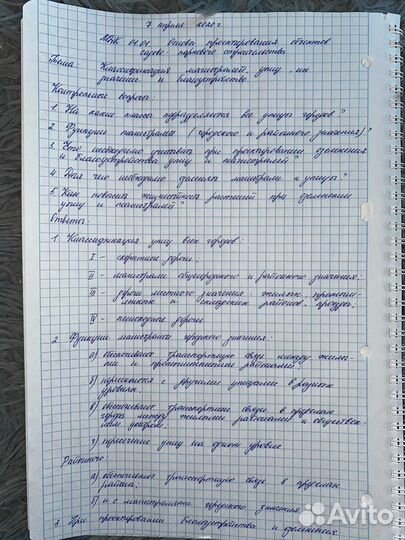 7 апреля 2020 г
МДК 01.01. Основы проектирования объектов
садово-паркового строительства
Тема: Классификация магистралей, улиц, их
значение и благоустройство
Контрольные вопросы
1. На какие классы подразделяются все улицы городов?
2. Функции магистрали (городского и районного значения)?
3. Что необходимо учитывать при проектировании озеленения
и благоустройства улиц и магистралей?
4. Для чего необходимо озеленять магистрали и улицы?
5. Как повысить жизнестойкость растений при озеленении
улиц и магистралей?
Ответы:
1. Классификация улиц всех городов:
I - скоростные дороги;
II - магистрали общегородского и районного значения;
III - дороги местного значения: жилые, промышлен-
и складских районов, проезды.
IV - пешеходные дороги
2. Функции магистрали городского значения:
а) обеспечивают транспортную связь между жилы-
ми и промышленными районами
б) пересекаются с другими улицами в разных
уровнях.
в) обеспечивают транспортные связи в пределах
города между жилыми районами и обществен-
ным центром.
г) пересечение улиц на одном уровне
Районного:
а) обеспечивают транспортную связь в пределах
района;
б) и с магистралями городского значения;
3. При проектировании благоустройства и озеленения
Avito